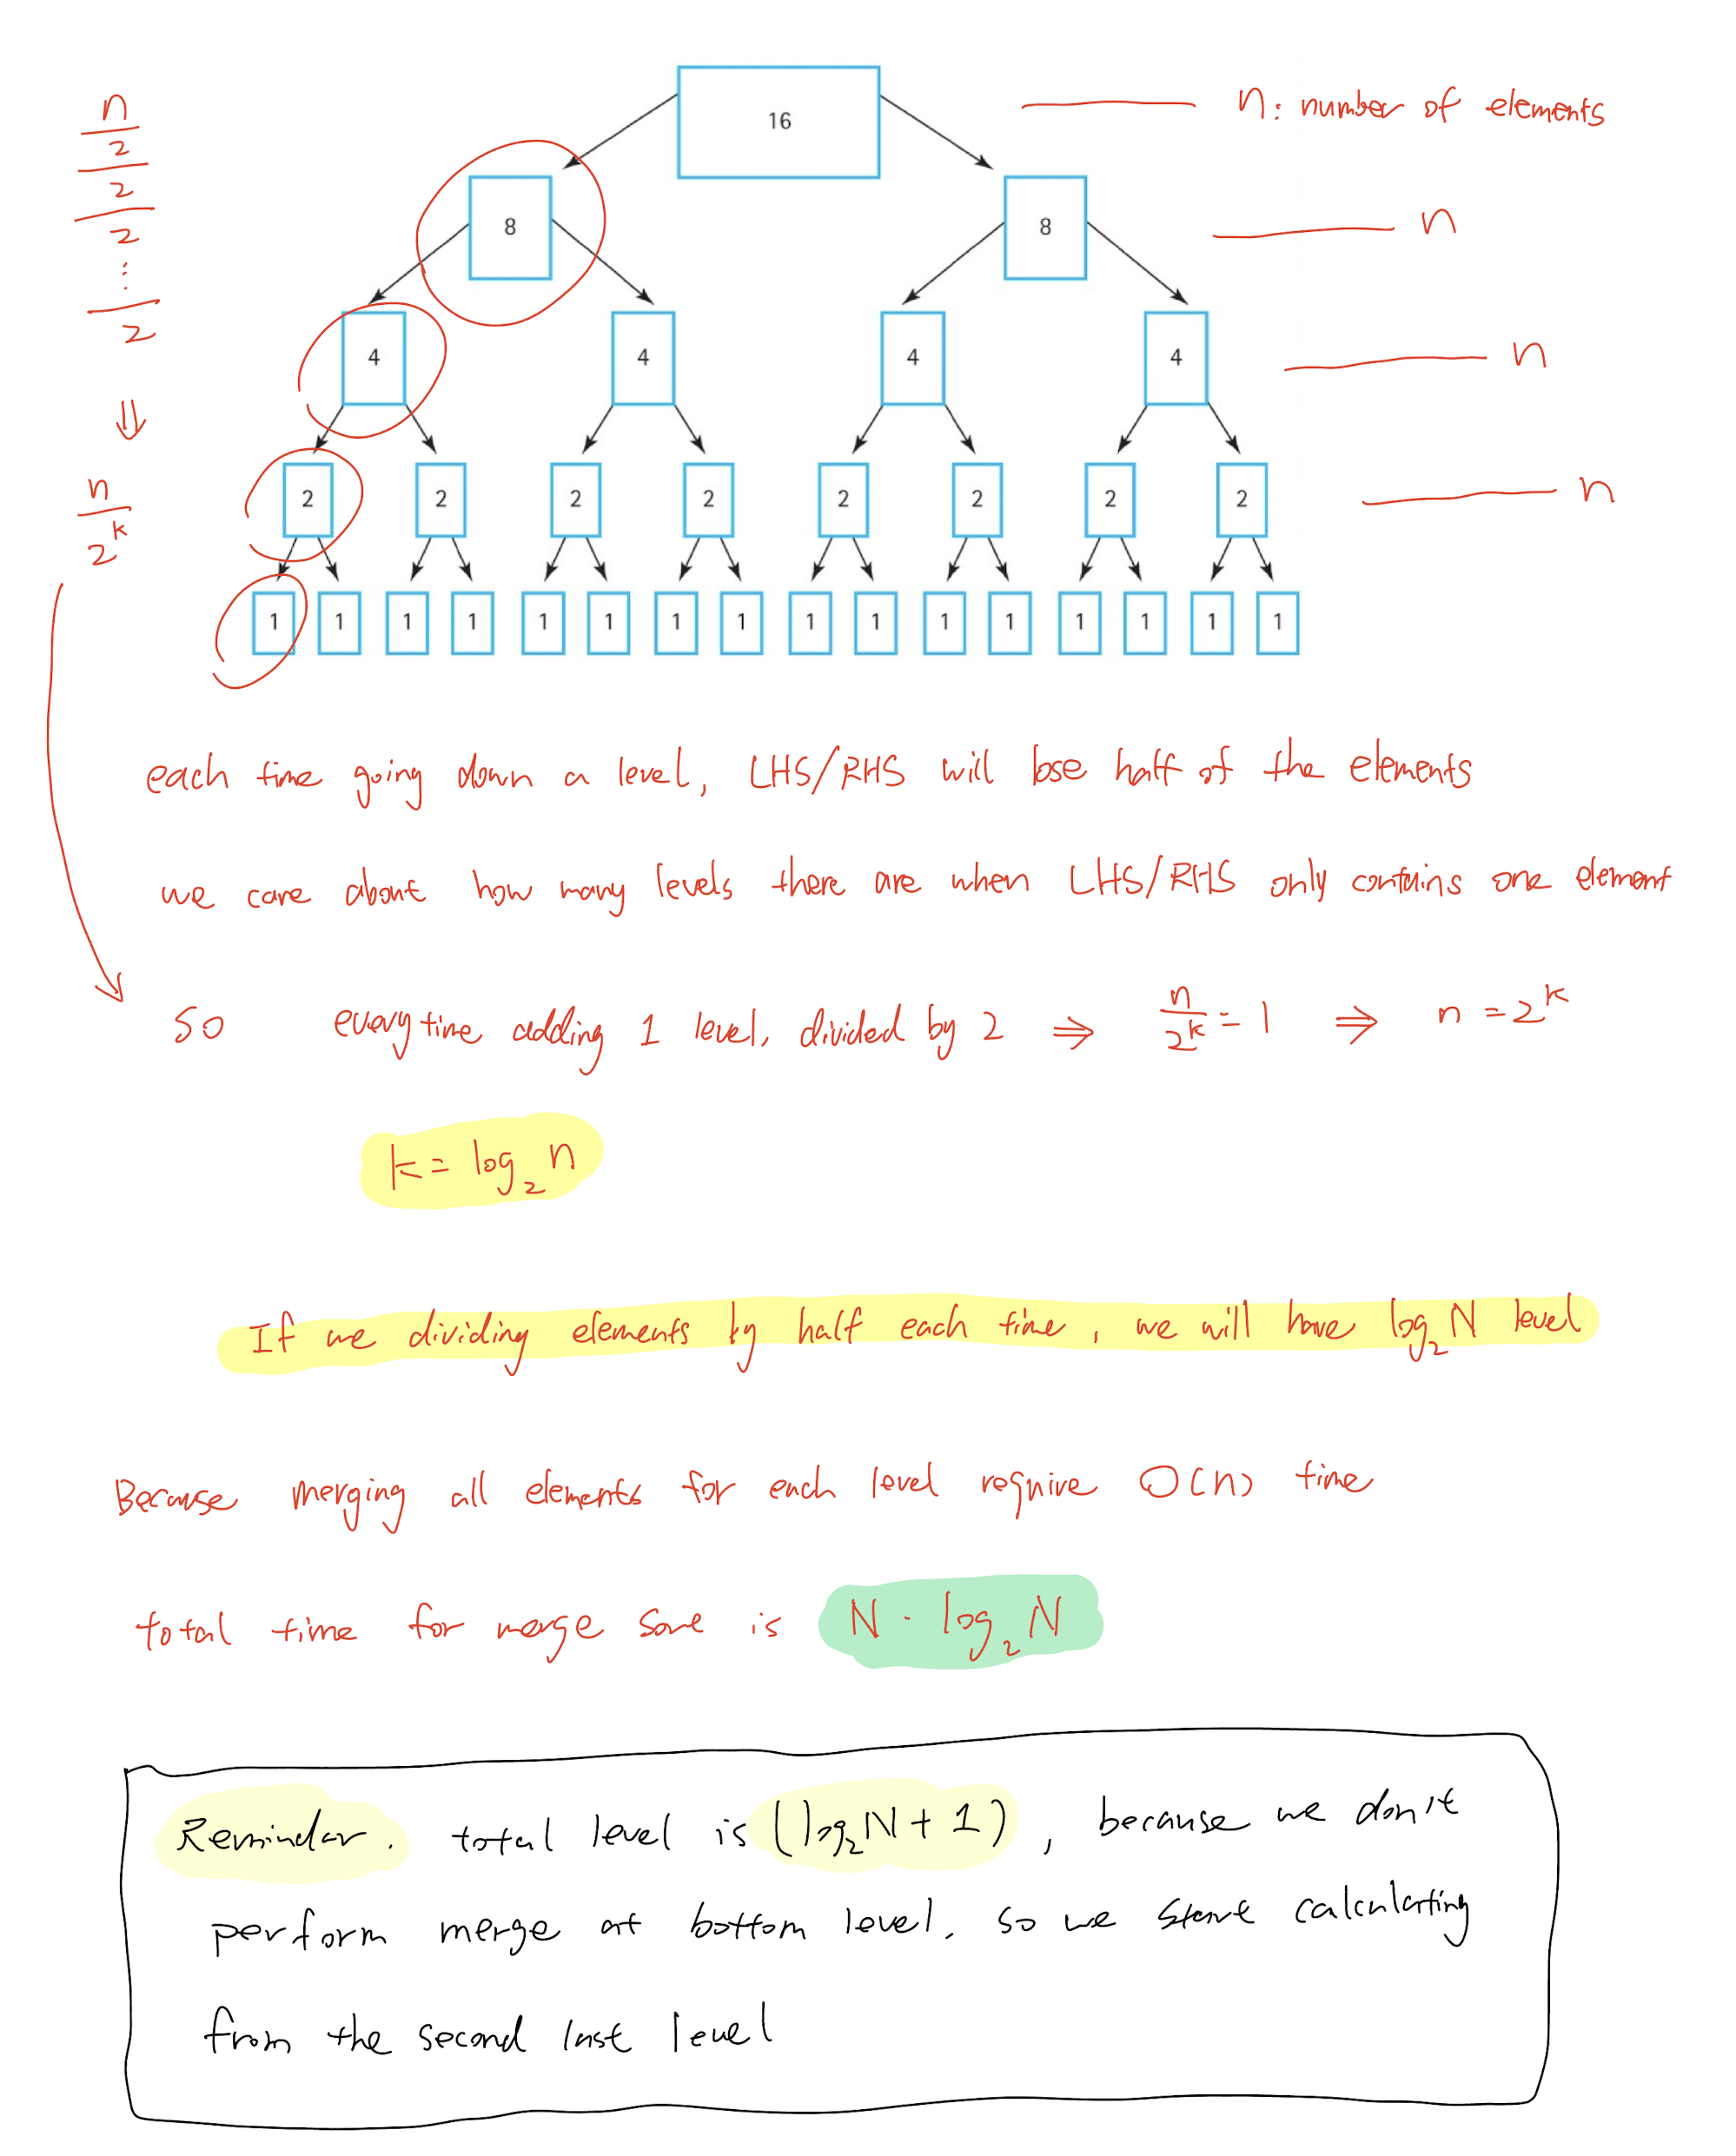 16
n: number of elements
8 8
n
4 4 4 4
n
2 2 2 2 2 2 2 2
n
1 1 1 1 1 1 1 1 1 1 1 1 1 1 1 1
n
2
2
2
⋮
2
⇓
n
2^k
each time going down a level, LHS/RHS will lose half of the elements
we care about how many levels there are when LHS/RHS only contains one element
So every time adding 1 level, divided by 2 ⇒ n/2^k = 1 ⇒ n = 2^k
k = log₂ n
If we dividing elements by half each time, we will have log₂ N level
Because merging all elements for each level require O(n) time
total time for merge sort is N · log₂ N
Reminder. total level is (log₂N + 1), because we don't
perform merge at bottom level, so we start calculating
from the second last level